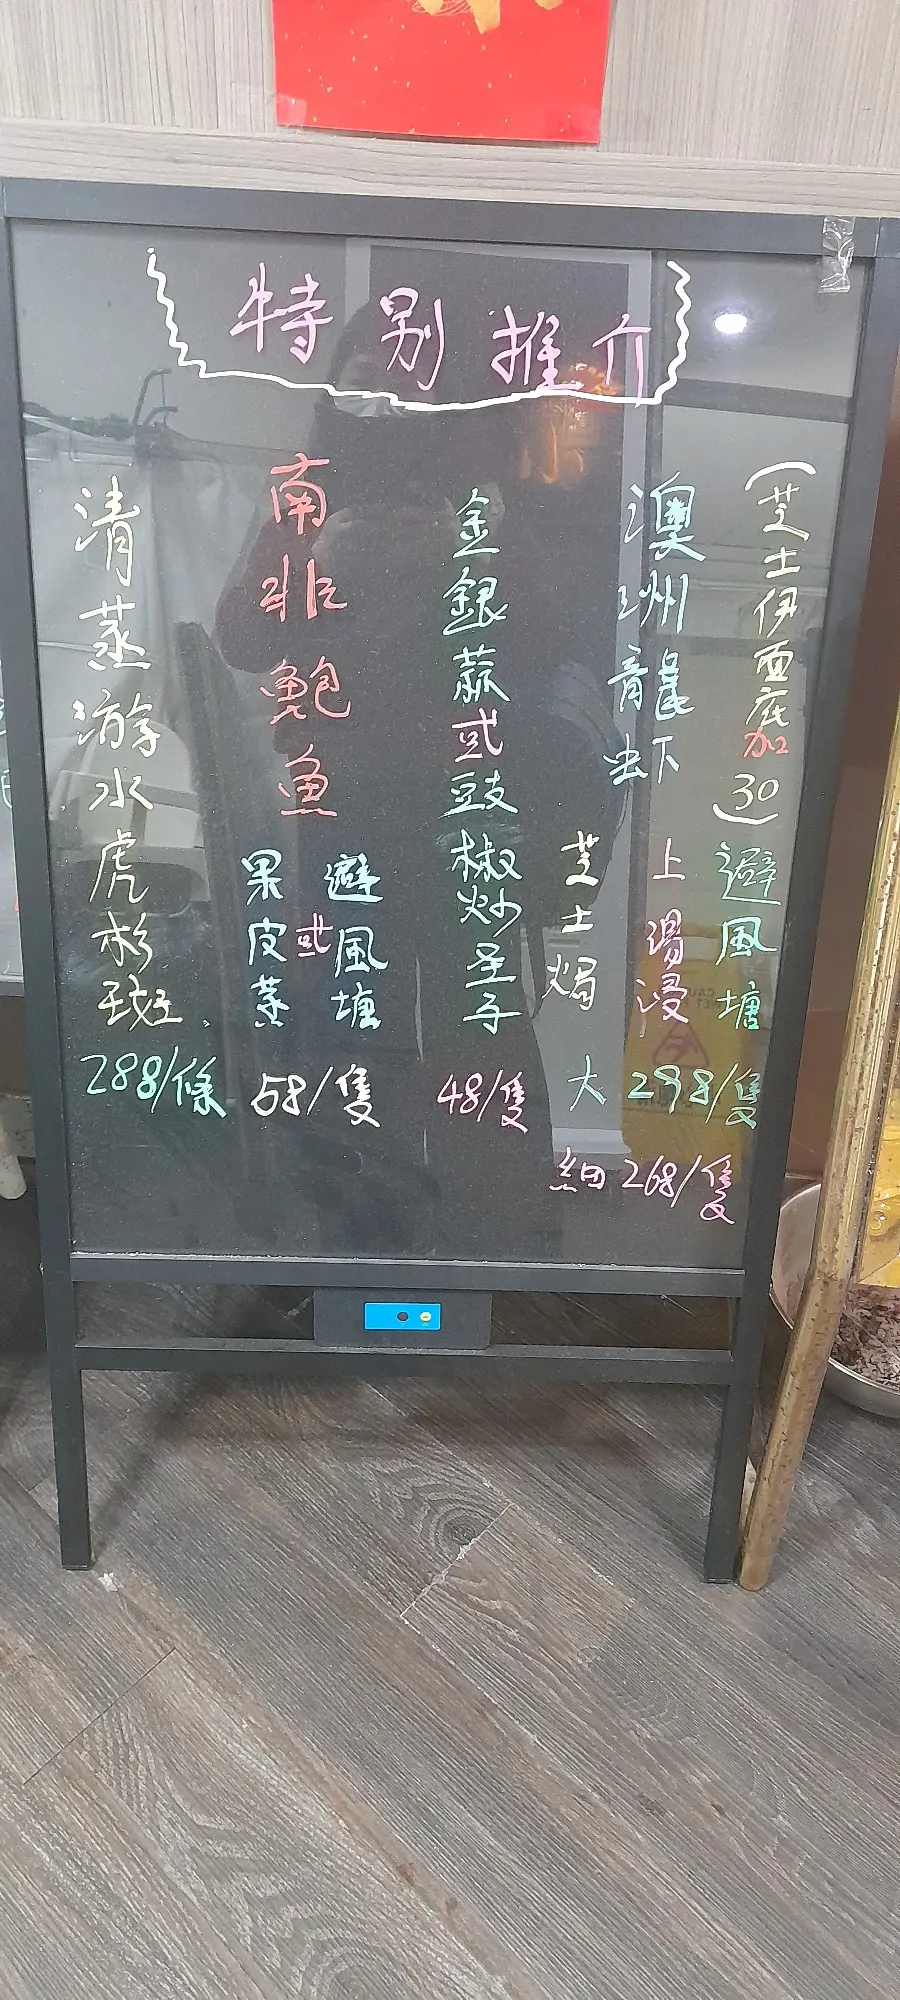 特別推介
(芝士伊面底加30)
澳洲龍虾
避風塘
上湯浸
芝士焗
大 298/隻
細 268/隻
金銀蒜或豉椒炒圣子
48/隻
南非鮑魚
避風塘
或
果皮蒸
58/隻
清蒸游水虎杉班
288/條